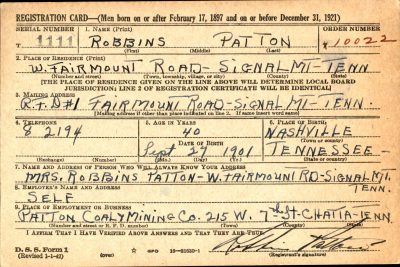 REGISTRATION CARD—(Men born on or after February 17, 1897 and on or before December 31, 1921)
SERIAL NUMBER 1. NAME (Print) ORDER NUMBER
T 1111 ROBBINS PATTON 10022
(First) (Middle) (Last)
2. PLACE OF RESIDENCE (Print)
W. FAIRMOUNT ROAD- SIGNAL MT- TENN
(Number and street) (Town, township, village, or city) (County) (State)
[THE PLACE OF RESIDENCE GIVEN ON THE LINE ABOVE WILL DETERMINE LOCAL BOARD
JURISDICTION; LINE 2 OF REGISTRATION CERTIFICATE WILL BE IDENTICAL]
3. MAILING ADDRESS
R.F.D#1 FAIRMOUNT ROAD-SIGNAL MT- TENN.
[Mailing address if other than place indicated on line 2. If same insert word same]
4. TELEPHONE 5. AGE IN YEARS 6. PLACE OF BIRTH
8 2194 40 NASHVILLE
DATE OF BIRTH (Town or county)
Sept 27 1901 TENNESSEE-
(Exchange) (Number) (Mo.) (Day) (Yr.) (State or country)
7. NAME AND ADDRESS OF PERSON WHO WILL ALWAYS KNOW YOUR ADDRESS
MRS. ROBBINS PATTON-W. FAIRMOUNT RD-SIGNAL MT.
TENN.
8. EMPLOYER'S NAME AND ADDRESS
SELF
9. PLACE OF EMPLOYMENT OR BUSINESS
PATTON COAL MINING CO. 215 W. 7th ST- CHATTA-TENN.
(Number and street or R. F. D. number) (Town) (County) (State)
I AFFIRM THAT I HAVE VERIFIED ABOVE ANSWERS AND THAT THEY ARE TRUE.
D. S. S. Form 1
(Revised 1-1-42) (Registrant's signature)